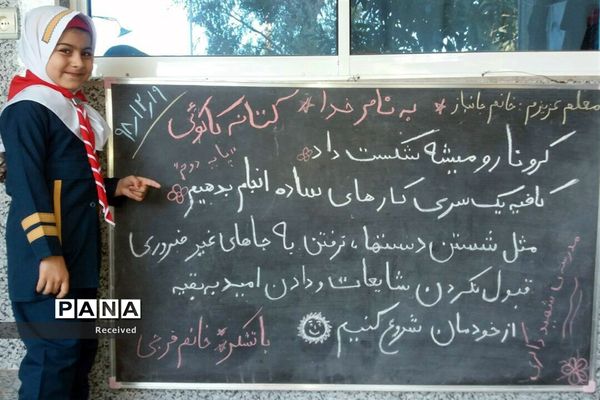 معلم عزیزم: خانم جانباز
به نام خدا
کتانه کاکوئی
"پایه دوم"
کرونا رو میشه شکست داد
کافیه یک سری کارهای ساده انجام بدهیم
مثل شستن دستها، نرفتن به جاهای غیر ضروری
قبول نکردن شایعات و دادن امید به بقیه
از خودمان شروع کنیم
با تشکر خانم فرجی
PANA
Received